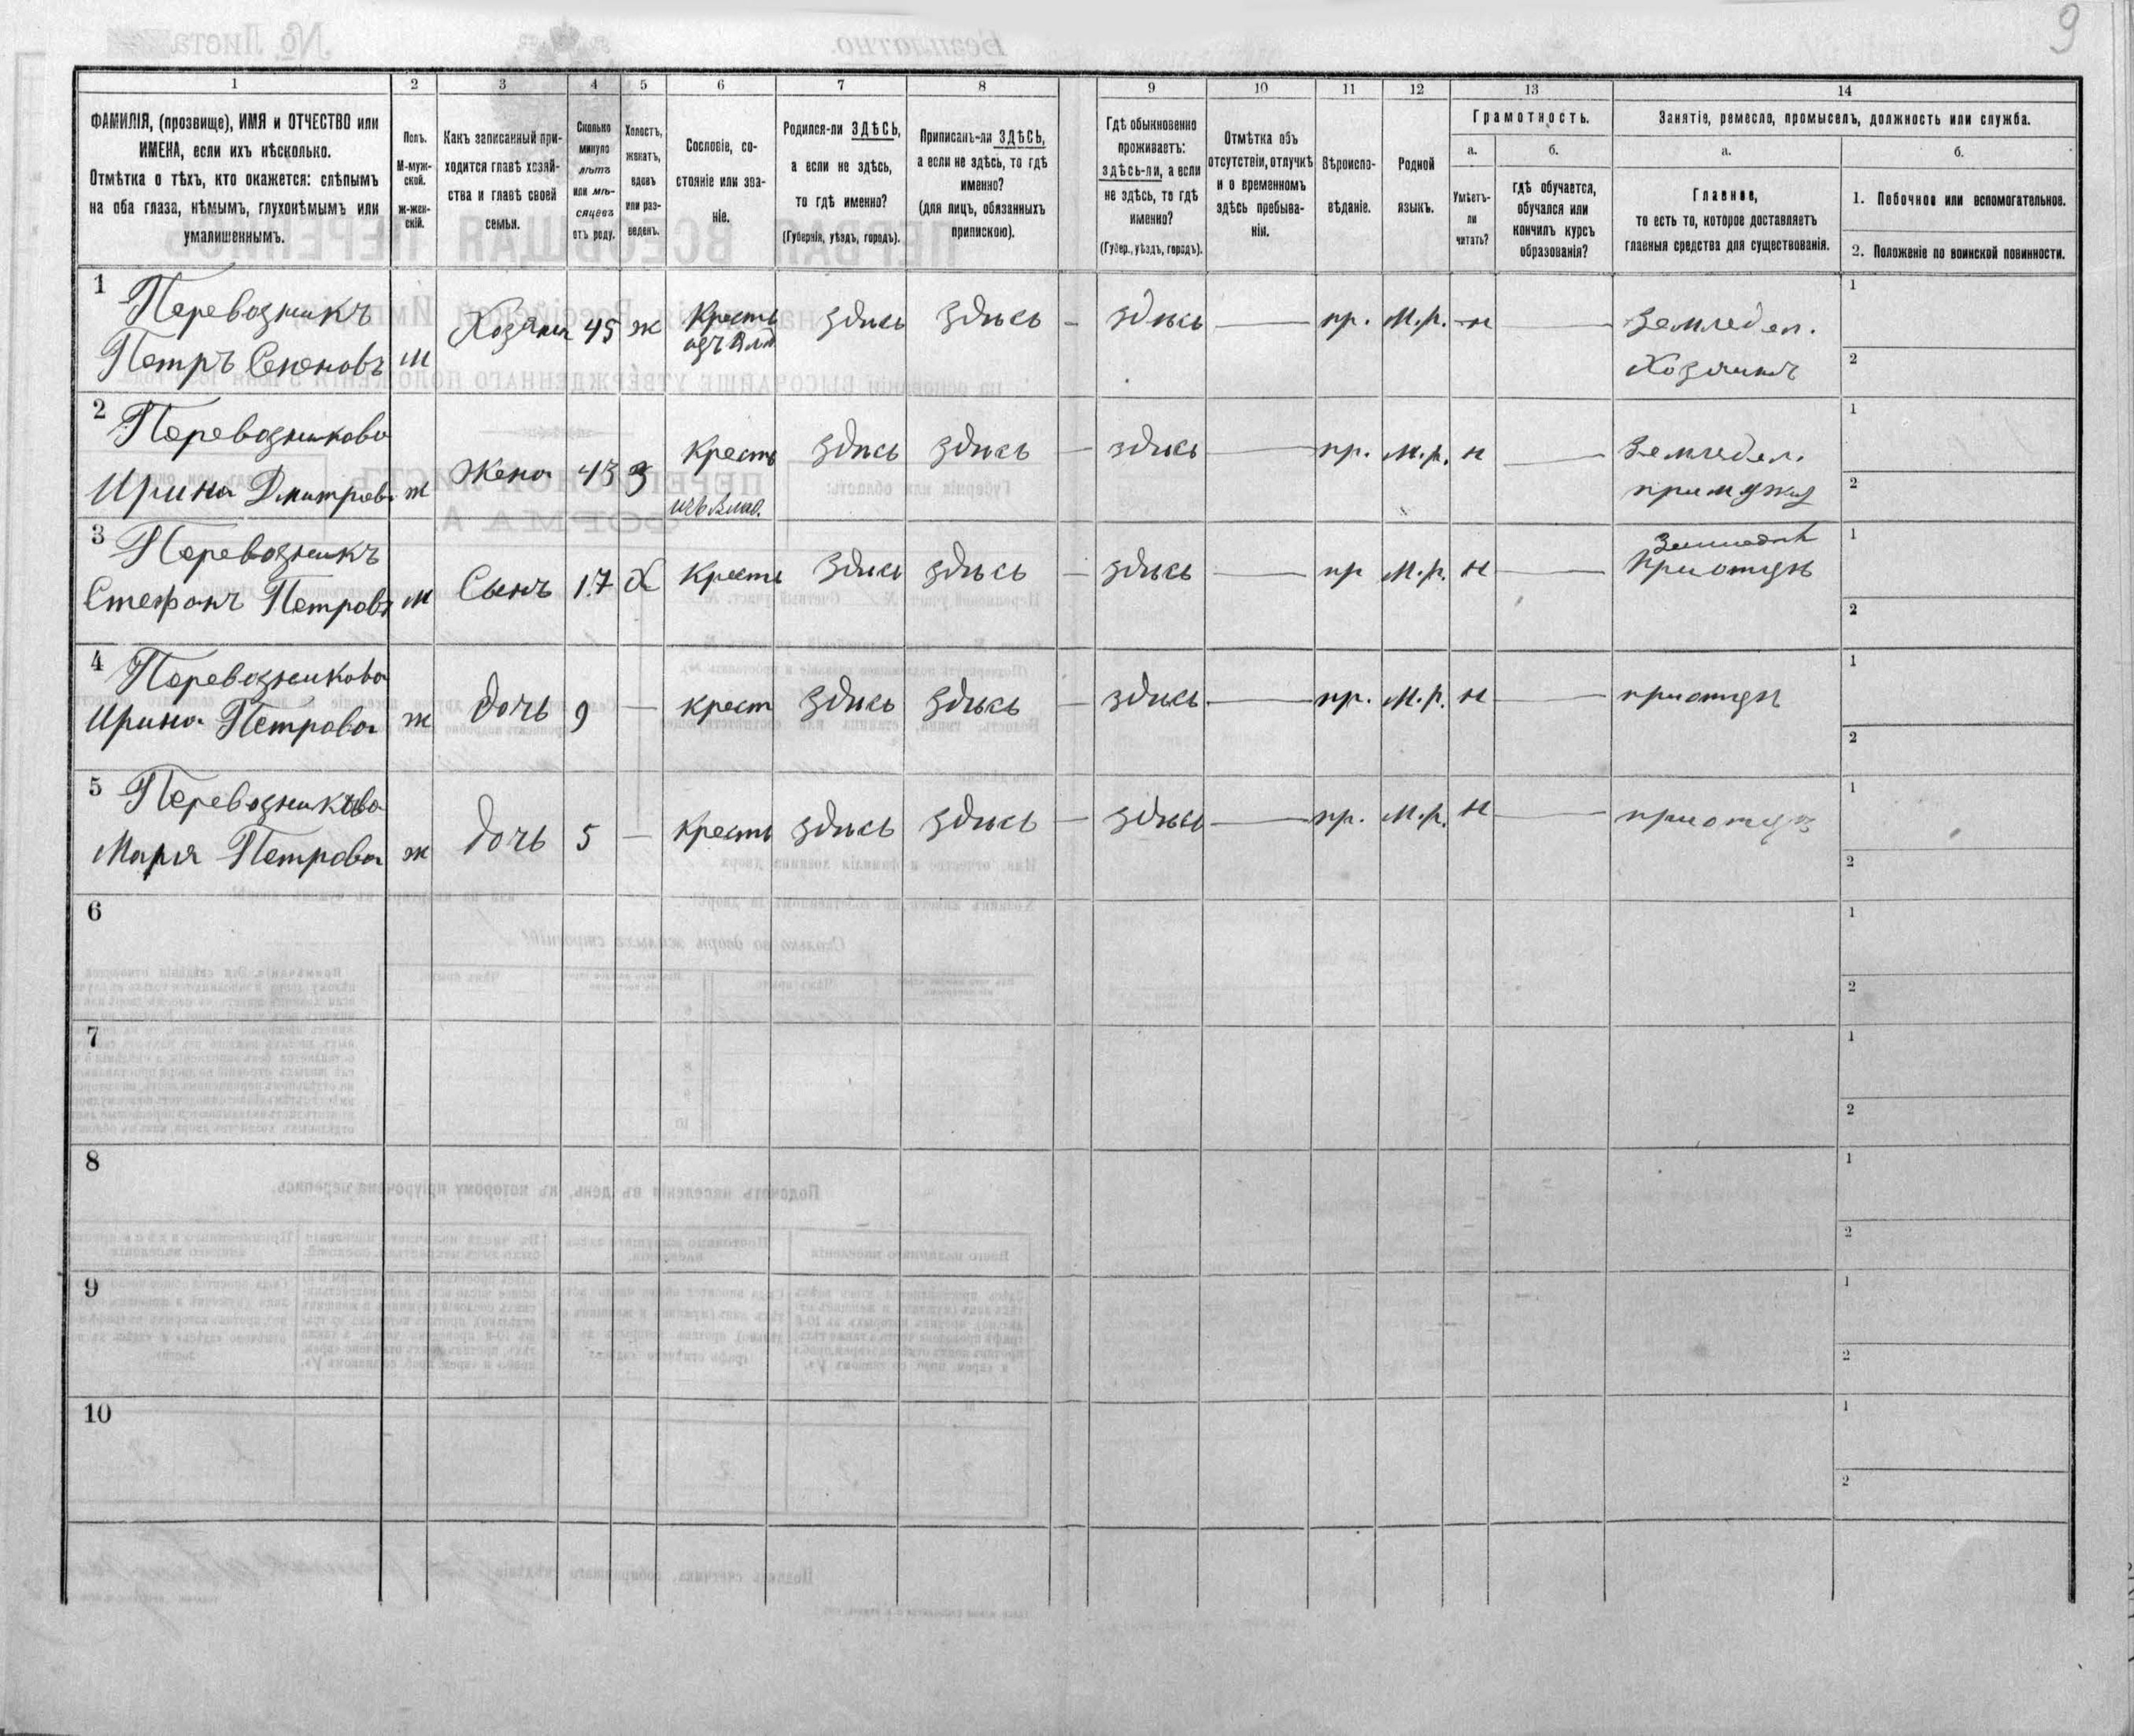 9
1 2 3 4 5 6 7 8 9 10 11 12 13 14
ФАМИЛІЯ, (прозвище), ИМЯ и ОТЧЕСТВО или
ИМЕНА, если ихъ нѣсколько.
Отмѣтка о тѣхъ, кто окажется: слѣпымъ
на оба глаза, нѣмымъ, глухонѣмымъ или
умалишеннымъ.
Полъ.
М-муж-
ской.
ж-жен-
скій.
Какъ записанный при-
ходится главѣ хозяй-
ства и главѣ своей
семьи.
Сколько
минуло
лѣтъ
или мѣ-
сяцевъ
отъ роду.
Холостъ,
женатъ,
вдовъ
или раз-
веденъ.
Сословіе, со-
стояніе или зва-
ніе.
Родился-ли ЗДѢСЬ,
а если не здѣсь,
то гдѣ именно?
(Губернія, уѣздъ, городъ).
Приписанъ-ли ЗДѢСЬ,
а если не здѣсь, то гдѣ
именно?
(для лицъ, обязанныхъ
припискою).
Гдѣ обыкновенно
проживаетъ:
здѣсь-ли, а если
не здѣсь, то гдѣ
именно?
(Губер., уѣздъ, городъ).
Отмѣтка объ
отсутствіи, отлучкѣ
и о временномъ
здѣсь пребыва-
ніи.
Вѣроиспо-
вѣданіе.
Родной
языкъ.
Грамотность.
а.
Умѣетъ-
ли
читать?
б.
гдѣ обучается,
обучался или
кончилъ курсъ
образованія?
Занятіе, ремесло, промыселъ, должность или служба.
а.
Главное,
то есть то, которое доставляетъ
главныя средства для существованія.
б.
1. Побочное или вспомогательное.
2. Положеніе по воинской повинности.
1 Перевозникъ Хозяинъ 45 ж Кресть здись здись — здись — пр. М.р. н — Земледел. 1
Петръ Семеновъ м изъ Влад Хозяинъ 2
2 Перевозникова Жена 43 з Кресть здись здись — здись — пр. М.р. н — Земледел. 1
Ирина Дмитрова ж изъ Влад. при мужу 2
3 Перевозникъ Сынъ 17 Х Кресть здись здись — здись — пр М.р. н — при отцѣ 1
Стефанъ Петровъ м 2
4 Перевозникова дочь 9 — крест здись здись — здись — пр. М.р. н — при отцѣ 1
Ирина Петрова ж 2
5 Перевозникова дочь 5 — кресть здись здись — здись — пр. М.р. н — при отцѣ 1
Мария Петрова ж 2
6 1
2
7 1
2
8 1
2
9 1
2
10 1
2